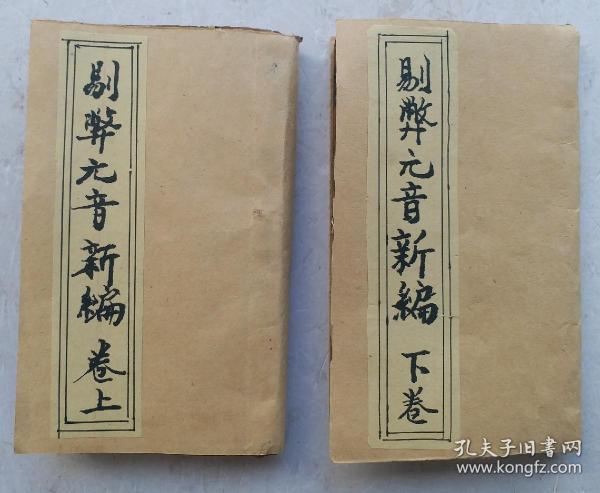 剔弊元音新編 卷上
剔弊元音新編 下卷
孔夫子旧書网
www.kongfz.com